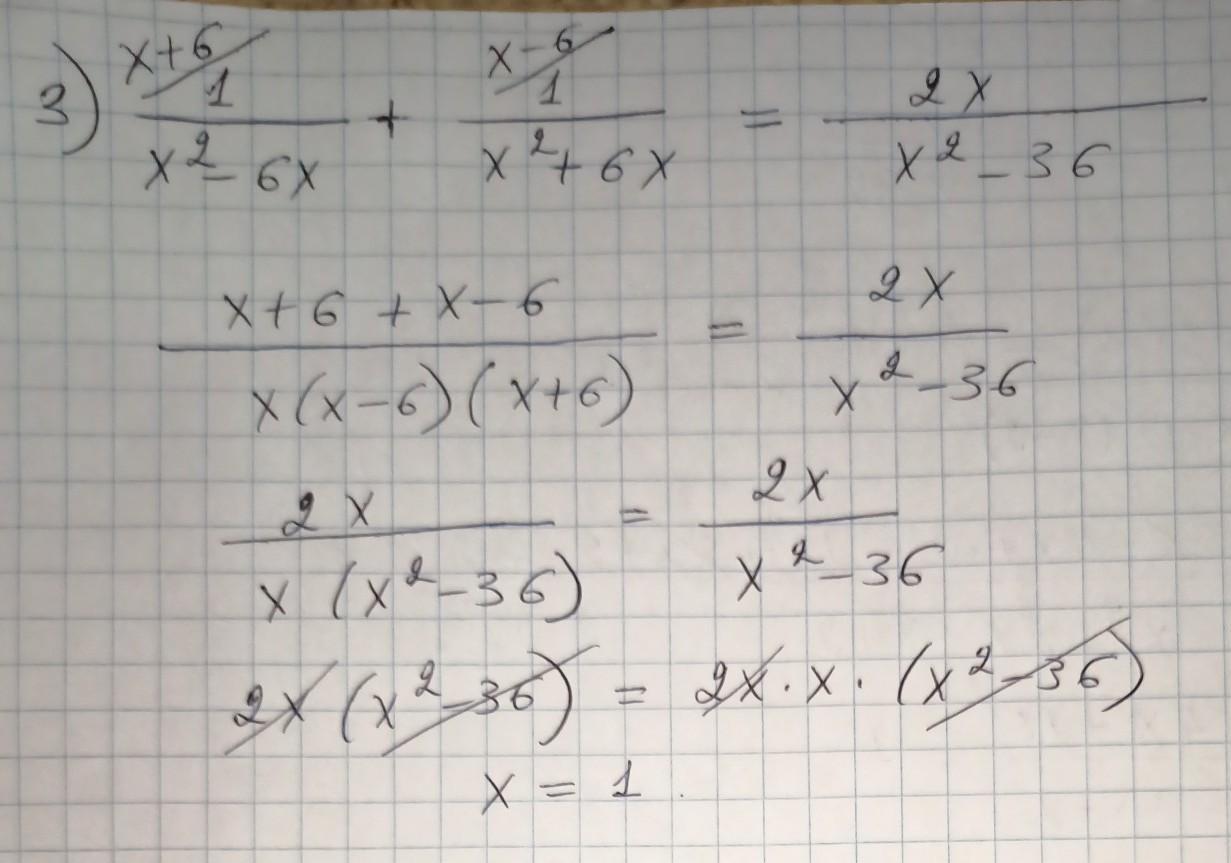 3) \frac{\cancel{x+6} 1}{x^2-6x} + \frac{\cancel{x-6} 1}{x^2+6x} = \frac{2x}{x^2-36}
\frac{x+6+x-6}{x(x-6)(x+6)} = \frac{2x}{x^2-36}
\frac{2x}{x(x^2-36)} = \frac{2x}{x^2-36}
\cancel{2x}\cancel{(x^2-36)} = \cancel{2x} \cdot x \cdot \cancel{(x^2-36)}
x = 1.